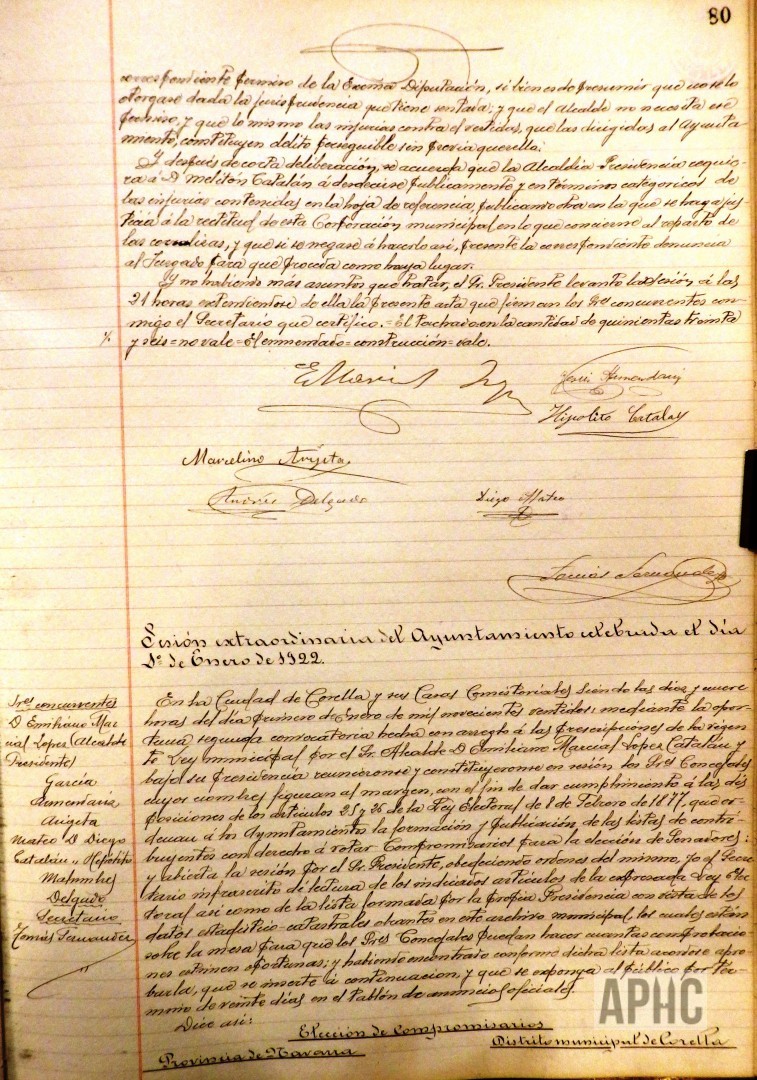 80
correspondiente permiso de la Excma Diputación, si bien es de presumir que no se lo
otorgase dada la jurisprudencia que tiene sentada; y que el Alcalde no necesita ese
permiso, y que lo mismo las injurias contra el vertidas, que las dirigidas al Ayunta-
miento, constituyen delito perseguible sin previa querella;
Y después de corta deliberación, se acuerda que la Alcaldia-Presidencia requie-
ra á D. Melitón Catalán á desdecirse publicamente y en términos categóricos de
las injurias contenidas en la hoja de referencia, publicando otra en la que se haga jus-
ticia á la rectitud de esta Corporación municipal en lo que concierne al reparto de
las corralizas, y que si se negase á hacerlo asi, presente la correspondiente denuncia
al Juzgado para que proceda como haya lugar.
Y no habiendo más asuntos que tratar, el Sr. Presidente levantó la sesión á las
21 horas extendiendose de ella la presente acta que firman los Sres concurrentes con-
migo el Secretario que certifico.=El tachado=en la cantidad de quinientas treinta
y seis=no vale=El enmendado=construcción=vale.
Hipolito Catalan
Marcelino Arigita
Andrés Delgado
Diego Mateo
Sesión extraordinaria del Ayuntamiento celebrada el día
1º de Enero de 1922.
Sres concurrentes
D Emiliano Mar-
cial Lopez (Alcalde
Presidente)
Garcia
Armendariz
Arigita
Mateo D. Diego
Catalán D. Hipólito
Delgado
Secretario
Tomás Fernandez
En la Ciudad de Corella y sus Casas Consistoriales siendo las diez y nueve
horas del día primero de Enero de mil novecientos veintidos: mediante la opor-
tuna segunda convocatoria hecha con arreglo á las prescripciones de la vigen-
te Ley municipal por el Sr. Alcalde D Emiliano Marcial Lopez Catalan y
bajo su presidencia reunieronse y constituyeronse en sesión los Sres Concejales
cuyos nombres figuran al margen, con el fin de dar cumplimiento á las dis-
posiciones de los articulos 25 y 26 de la Ley Electoral de 8 de Febrero de 1877, que or-
denan á los Ayuntamientos la formación y publicación de las listas de contri-
buyentes con derecho á votar Compromisarios para la elección de Senadores:
y abierta la sesión por el Sr. Presidente, obedeciendo ordenes del mismo, yo el Secre-
tario infrascrito dí lectura de los indicados artículos de la expresada Ley elec-
toral asi como de la lista formada por la propia Presidencia con vista de los
datos estadistico-catastrales obrantes en este archivo municipal, los cuales están
sobre la mesa para que los Sres Concejales puedan hacer cuantas comprobacio-
nes estimen oportunas; y habiendo encontrado conforme dicha lista acordose apro-
barla, que se inserte á continuacion, y que se exponga al público por tér-
mino de veinte días en el tablón de anuncios oficiales.
Dice asi:
Elección de Compromisarios
Provincia de Navarra
Distrito municipal de Corella
APHC